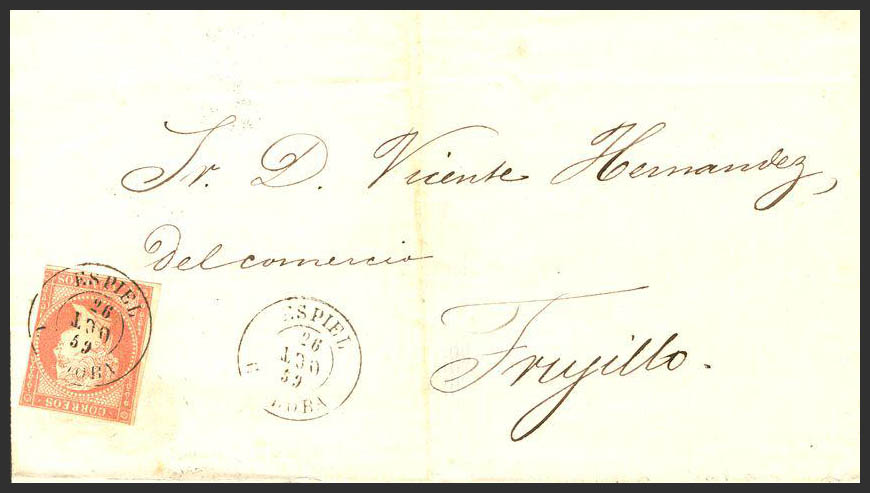 Sr. D. Vicente Hernandez,
del comercio
Trujillo.
ESPIEL
26
OCT
59
CORREOS
ESPIEL
26
OCT
59